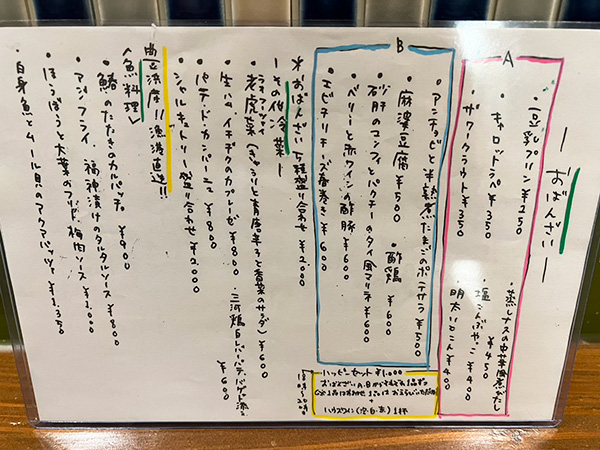 おばんざい
A
・豆乳プリン ¥250
・キャロットラペ ¥350
・ザワークラウト ¥350
・蒸しナスの中華風煮びたし ¥450
・塩こんぶやっこ ¥400
・明太いとこん ¥400
B
・アンチョビと半熟煮たまごのポテサラ ¥500
・麻婆豆腐 ¥500
・酢鶏 ¥600
・砂肝のコンフィとパクチーのタイ風マリネ ¥600
・ベリーと赤ワインの酢豚 ¥600
・エビチリチーズ春巻き ¥600
ハッピーセット ¥1,000
おばんざいA,Bからそれぞれ1品ずつ
+
ハウスワイン(泡・白・赤) 1杯
*おばんざい5種盛り合わせ ¥2,000
ーその他冷菜ー
・老虎菜(きゅうりと青唐辛子と香菜のサラダ) ¥600
・生ハムイチヂクのカプレーゼ ¥800
・三河鶏白レバーパテバゲット添え ¥600
・パテドカンパーニュ ¥800
・シャルキュトリー盛り合わせ ¥2,000
曲豆浜店!!漁港直送!!
〈魚料理〉
・鰆のたたきのカルパッチョ ¥900
・アジフライ 福神漬けのタルタルソース ¥800
・ほうぼうと大葉のフリット 梅肉ソース ¥1,000
・白身魚とムール貝のアクアパッツァ ¥1,350